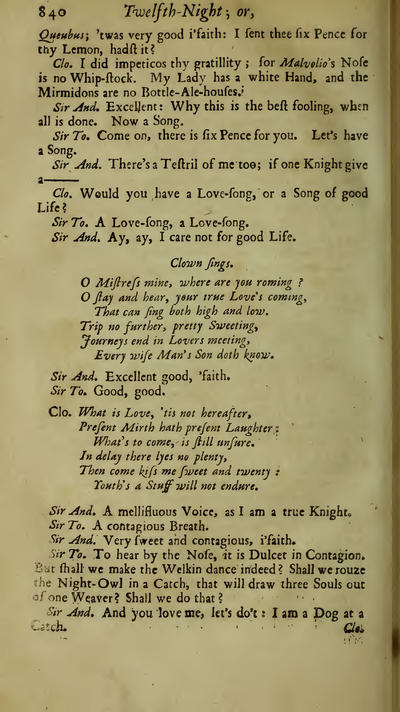 840 Twelfth-Night; or,
Queubus; 'twas very good i'faith: I ſent thee ſix Pence for
thy Lemon, hadſt it?
Clo. I did impeticos thy gratillity; for Malvolio's Noſe
is no Whip-ſtock. My Lady has a white Hand, and the
Mirmidons are no Bottle-Ale-houſes.
Sir And. Excellent: Why this is the beſt fooling, when
all is done. Now a Song.
Sir To. Come on, there is ſix Pence for you. Let's have
a Song.
Sir And. There's a Teſtril of me too; if one Knight give
a——
Clo. Would you have a Love-ſong, or a Song of good
Life?
Sir To. A Love-ſong, a Love-ſong.
Sir And. Ay, ay, I care not for good Life.
Clown ſings.
O Miſtreſs mine, where are you roming?
O ſtay and hear, your true Love's coming,
That can ſing both high and low.
Trip no further, pretty Sweeting,
Journeys end in Lovers meeting,
Every wiſe Man's Son doth know.
Sir And. Excellent good, 'faith.
Sir To. Good, good.
Clo. What is Love, 'tis not hereafter,
Preſent Mirth hath preſent Laughter:
What's to come, is ſtill unſure.
In delay there lyes no plenty,
Then come kiſs me ſweet and twenty:
Youth's a Stuff will not endure.
Sir And. A mellifluous Voice, as I am a true Knight.
Sir To. A contagious Breath.
Sir And. Very ſweet and contagious, i'faith.
Sir To. To hear by the Noſe, it is Dulcet in Contagion.
But ſhall we make the Welkin dance indeed? Shall we rouze
the Night-Owl in a Catch, that will draw three Souls out
of one Weaver? Shall we do that?
Sir And. And you love me, let's do't: I am a Dog at a
Catch.
Clo.